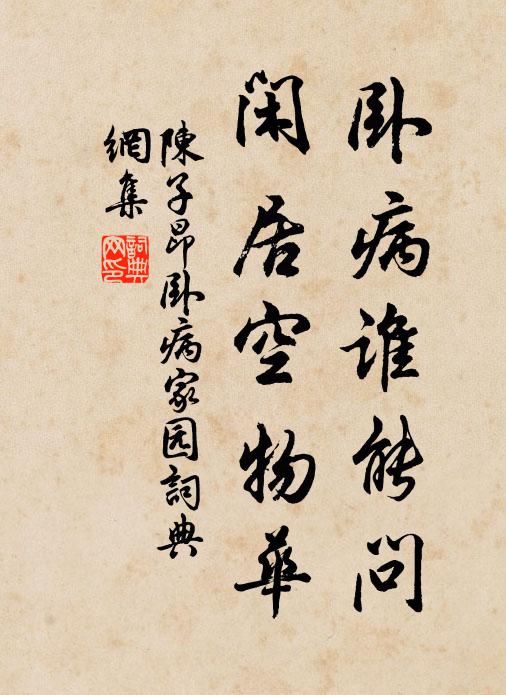 卧病誰能問
闲居空物華
陳子昂卧病家园詞典
網集
詞典网印